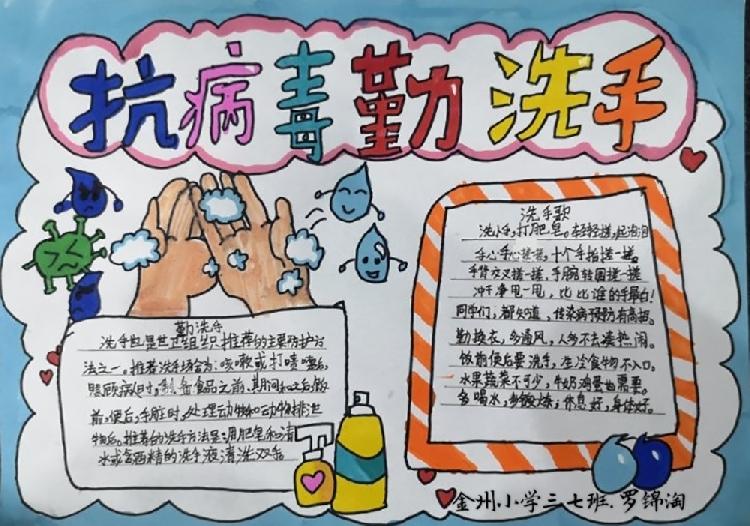 抗病毒勤洗手
勤洗手
洗手也是世卫组织推荐的主要防护方
法之一。推荐洗手场合为：咳嗽或打喷嚏后，
照顾病人时，制备食品之前、期间和之后，饭
前，便后，手脏时，处理动物和动物排泄
物后。推荐的洗手方法是：用肥皂和清
水或含酒精的洗手液清洗双手
洗手歌
洗小手，打肥皂。轻轻搓，起泡泡
手心手心搓搓，十个手指搓一搓。
手背交叉搓一搓，手腕转圈搓一搓
冲干净甩一甩，比比谁的手最白！
同学们，都知道，传染病预防有高招。
勤换衣，多通风，人多不去凑热闹。
饭前便后要洗手，生冷食物不入口。
水果蔬菜不可少，牛奶鸡蛋也需要。
多喝水，多锻炼，休息好，身体好。
金州小学三七班.罗锦淘